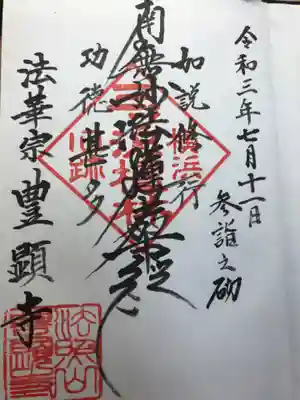 令和三年七月十一日
参詣之砌
如説修行
南無妙法蓮華経
功徳甚多
法華宗 豊顕寺
横浜
旧跡
法照山
豊顕寺